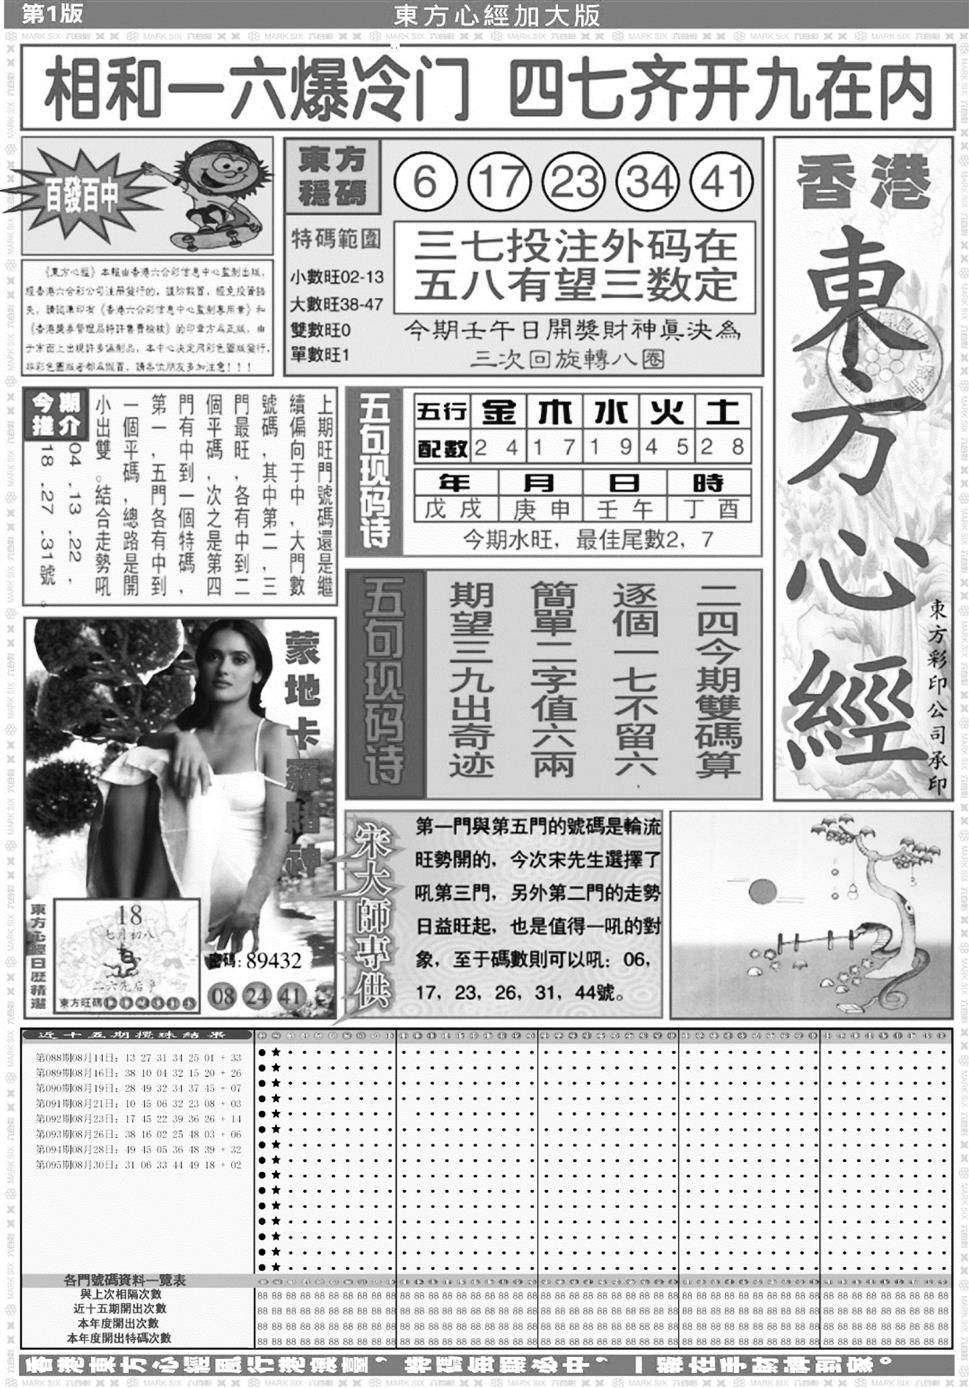 第1版
東方心經加大版
相和一六爆冷门 四七齐开九在内
百發百中
《東方心經》本報由香港六合彩信息中心監制出版，
經香港六合彩公司注册發行的，謹防假冒，經免投資錯
失，請認準印有《香港六合彩信息中心監制專用章》和
《香港獎券管理局特許售賣檢核》的印章方爲正版，由
于市面上出現許多僞制品，本中心決定用彩色圖版發行，
非彩色圖版者都爲假冒，請各位朋友多加注意！！！
東方
穩碼
6 17 23 34 41
特碼範圍
小數旺02-13
大數旺38-47
雙數旺0
單數旺1
三七投注外码在
五八有望三数定
今期壬午日開獎財神眞決為
三次回旋轉八圈
香港
東方心經
東方彩印公司承印
今期
推介
上期旺門號碼還是繼
續偏向于中，大門數
號碼，其中第二，三
門最旺，各有中到二
個平碼，次之是第四
門有中到一個特碼，
第一，五門各有中到
一個平碼，總路是開
小出雙。結合走勢吼
04,13,22,
18,27,31號。
五句现码诗
五行 金 木 水 火 土
配數 2 4 1 7 1 9 4 5 2 8
年 月 日 時
戊戌 庚申 壬午 丁酉
今期水旺，最佳尾數2，7
五句现码诗
二四今期雙碼算
逐個一七不留六
簡單二字值六兩
期望三九出奇迹
蒙地卡羅賭神
東方心經日歷精選
18
七月初八
二六先后爭
東方旺碼
密碼：89432
08 24 41
宋大師専供
第一門與第五門的號碼是輪流
旺勢開的，今次宋先生選擇了
吼第三門，另外第二門的走勢
日益旺起，也是值得一吼的對
象，至于碼數則可以吼：06，
17，23，26，31，44號。
近十五期攪珠結果
第088期08月14日：13 27 31 34 25 01 + 33
第089期08月16日：38 10 04 32 15 20 + 26
第090期08月19日：28 49 32 34 37 45 + 07
第091期08月21日：10 45 06 32 23 08 + 03
第092期08月23日：17 45 22 39 36 26 + 14
第093期08月26日：38 16 02 25 48 03 + 06
第094期08月28日：49 45 05 36 48 39 + 32
第095期08月30日：31 06 33 44 49 18 + 02
各門號碼資料一覽表
與上次相隔次數
近十五期開出次數
本年度開出次數
本年度開出特碼次數
香港東方心經風行港澳臺，特碼每期必中，一版在手財神到家。